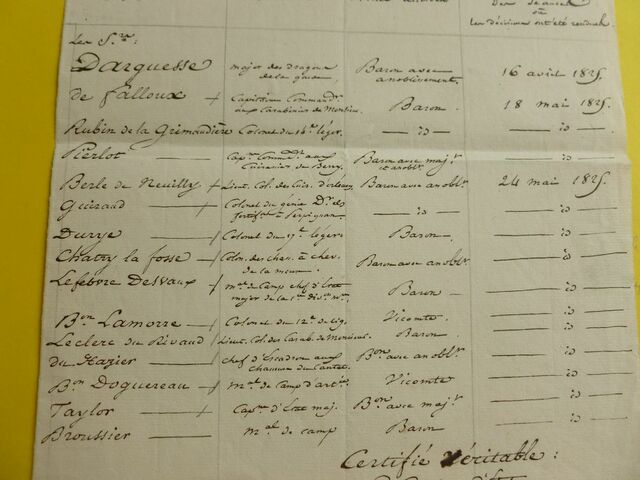 où
les décisions ont été rendues
Les Srs
Darguesse major des dragons de la garde Baron avec anoblissement. 16 avril 1825.
de Falloux Capitaine Command.t aux Carabiniers de Monsieur Baron. 18 mai 1825.
Rubin de la Grimaudière Colonel du 14e léger. — id — — id —
Pierlot Cap.ne Comm.dt aux Cuirassiers de Berry. Baron avec maj.t et anobl.t — id —
Berle de Neuilly Lieut. Col. des Cuirs. d'orléans Baron avec anobl.t 24 mai 1825.
Guiraud Colonel du génie D.r des fortif.ns à Perpignan. — id — — id —
Durye Colonel du 17e léger Baron. — id —
Chatry la fosse Colon. des chas. à chev. de la meuse. Baron avec anobl.t — id —
Lefebvre Desvaux m.al de Camp chef d'Etat major de la 1re div.on m.re Baron — id —
B.on Lamorre Colonel du 12e de lig. Vicomte. — id —
Leclerc du Rivaud Lieut. Col. des Carab. de Monsieur. Baron — id —
du Hazier chef d'Escadron aux Chasseurs du Cantal. B.on avec anobl.t — id —
B.on Doguereau m.al de Camp d'art.rie Vicomte — id —
Taylor Cap.ne d'Etat maj. B.on avec maj.t — id —
Broussier m.al de camp Baron — id —
Certifié Véritable :